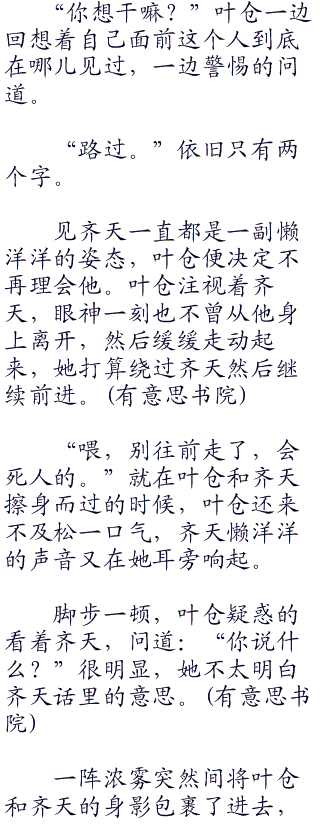 “你想干嘛？”叶仓一边
回想着自己面前这个人到底
在哪儿见过，一边警惕的问
道。
“路过。”依旧只有两
个字。
见齐天一直都是一副懒
洋洋的姿态，叶仓便决定不
再理会他。叶仓注视着齐
天，眼神一刻也不曾从他身
上离开，然后缓缓走动起
来，她打算绕过齐天然后继
续前进。(有意思书院)
“喂，别往前走了，会
死人的。”就在叶仓和齐天
擦身而过的时候，叶仓还来
不及松一口气，齐天懒洋洋
的声音又在她耳旁响起。
脚步一顿，叶仓疑惑的
看着齐天，问道：“你说什
么？”很明显，她不太明白
齐天话里的意思。(有意思书
院)
一阵浓雾突然间将叶仓
和齐天的身影包裹了进去，